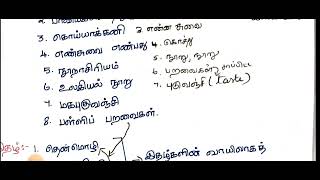 3. கொய்யாக்கனி 3 என்ன சுவை
4. எண்சுவை எண்பது 4. கொத்து
5. நூறாசிரியம் 5. நூறு, நூறு
6. உலகியல் நூறு 6. பறவைகள்
7. மகபுகுவஞ்சி 7. புகுவஞ்சி (Taste)
8. பள்ளிப் பறவைகள்.
1. தென்மொழி
இதழ்களின் வாயிலாகத்